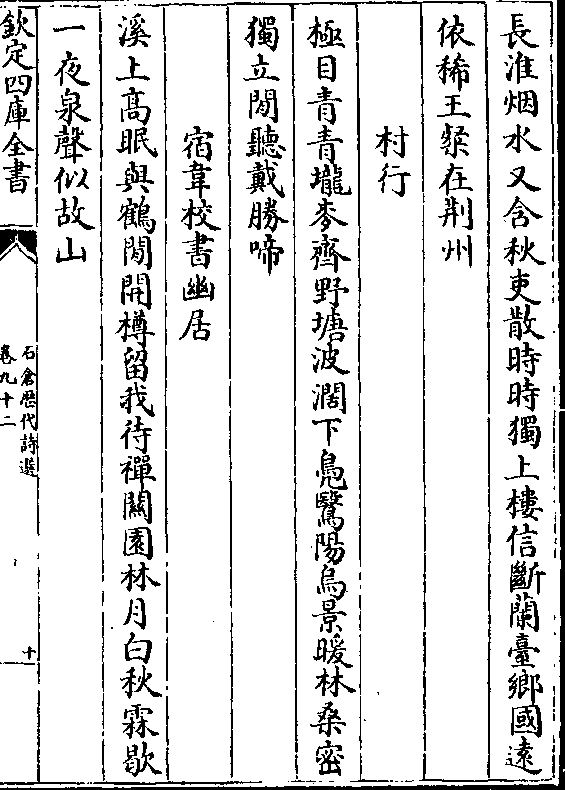 長淮烟水又含秋吏散時時獨上樓信斷蘭臺鄉國遠
依稀王粲在荆州
村行
極目青青壠麥齊野塘波濶下鳧鷖陽烏景暖林桑密
獨立閒聽戴勝啼
宿韋校書幽居
溪上高眠與鶴閒開樽留我待禪關園林月白秋霖歇
一夜泉聲似故山
欽定四庫全書
石倉歷代詩選
卷九十二
十